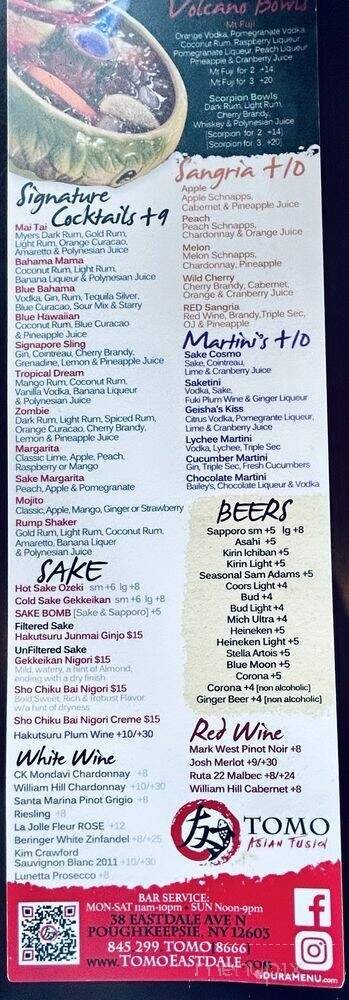 Volcano Bowls
Mt Fuji
Orange Vodka, Pomegranate Vodka
Coconut Rum, Raspberry Liqueur
Pomegranate Liqueur, Peach Liqueur
Pineapple & Cranberry Juice
Mt Fuji for 2 +14
Mt Fuji for 3 +20
Scorpion Bowls
Dark Rum, Light Rum,
Cherry Brandy,
Whiskey & Polynesian Juice
[Scorpion for 2 +14]
[Scorpion for 3 +20]
Signature
Cocktails +9
Mai Tai
Myers Dark Rum, Gold Rum,
Light Rum, Orange Curacao,
Amaretto & Polynesian Juice
Bahama Mama
Coconut Rum, Light Rum,
Banana Liqueur & Polynesian Juice
Blue Bahama
Vodka, Gin, Rum, Tequila Silver,
Blue Curacao, Sour Mix & Starry
Blue Hawaiian
Coconut Rum, Blue Curacao
& Pineapple Juice
Signapore Sling
Gin, Cointreau, Cherry Brandy,
Grenadine, Lemon & Pineapple Juice
Tropical Dream
Mango Rum, Coconut Rum,
Vanilla Vodka, Banana Liqueur
& Polynesian Juice
Zombie
Dark Rum, Light Rum, Spiced Rum,
Orange Curacao, Cherry Brandy,
Lemon & Pineapple Juice
Margarita
Classic Lime, Apple, Peach,
Raspberry or Mango
Sake Margarita
Peach, Apple & Pomegranate
Mojito
Classic, Apple, Mango, Ginger or Strawberry
Rump Shaker
Gold Rum, Light Rum, Coconut Rum,
Amaretto, Banana Liquer
& Polynesian Juice
SAKE
Hot Sake Ozeki sm +6 lg +8
Cold Sake Gekkeikan sm +6 lg +8
SAKE BOMB [Sake & Sapporo] +5
Filtered Sake
Hakutsuru Junmai Ginjo $15
UnFiltered Sake
Gekkeikan Nigori $15
Mild, watery, a hint of Almond,
ending with a dry finish
Sho Chiku Bai Nigori $15
Bold, Sweet, Rich & Robust Flavor
w/a hint of dryness
Sho Chiku Bai Nigori Creme $15
Hakutsuru Plum Wine +10/+30
White Wine
CK Mondavi Chardonnay +8
William Hill Chardonnay +10/+30
Santa Marina Pinot Grigio +8
Riesling +8
La Jolle Fleur ROSE +12
Beringer White Zinfandel +8/+25
Kim Crawford
Sauvignon Blanc 2011 +10/+30
Lunetta Prosecco +8
Sangria +10
Apple
Apple Schnapps,
Cabernet & Pineapple Juice
Peach
Peach Schnapps,
Chardonnay & Orange Juice
Melon
Melon Schnapps,
Chardonnay, Pineapple
Wild Cherry
Cherry Brandy, Cabernet,
Orange & Cranberry Juice
RED Sangria
Red Wine, Brandy, Triple Sec,
OJ & Pineapple
Martini's +10
Sake Cosmo
Sake, Cointreau,
Lime & Cranberry Juice
Saketini
Vodka, Sake,
Fuki Plum Wine & Ginger Liqueur
Geisha's Kiss
Citrus Vodka, Pomegrante Liqueur,
Lime & Cranberry Juice
Lychee Martini
Vodka, Lychee, Triple Sec
Cucumber Martini
Gin, Triple Sec, Fresh Cucumbers
Chocolate Martini
Bailey's, Chocolate Liqueur & Vodka
BEERS
Sapporo sm +5 lg +8
Asahi +5
Kirin Ichiban +5
Kirin Light +5
Seasonal Sam Adams +5
Coors Light +4
Bud +4
Bud Light +4
Mich Ultra +4
Heineken +5
Heineken Light +5
Stella Artois +5
Blue Moon +5
Corona +5
Corona +4 [non alcoholic]
Ginger Beer +4 [non alcoholic]
Red Wine
Mark West Pinot Noir +8
Josh Merlot +9/+30
Ruta 22 Malbec +8/+24
William Hill Cabernet +8
TOMO
ASIAN FUSION
BAR SERVICE:
MON-SAT 11am-10pm SUN Noon-9pm
38 EASTDALE AVE N
POUGHKEEPSIE, NY 12603
845 299 TOMO [8666]
www.TOMOEASTDALE.com
DURAMENU.com